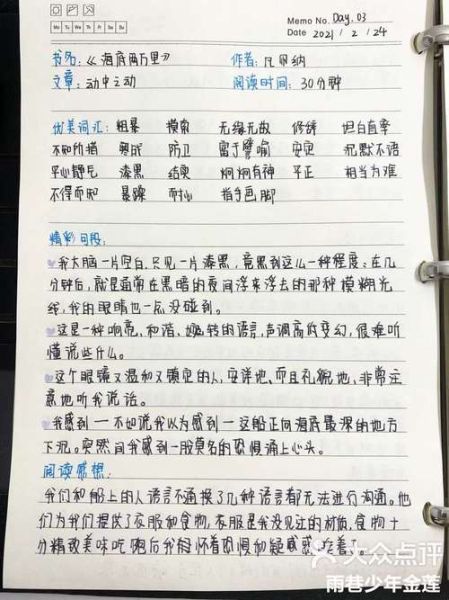 Memo No. Day. 03
Mo Tu We Th Fr Sa Su
Date 2021 / 2 / 24
书名:《海底两万里》 作者:凡尔纳
文章:动中之动 阅读时间:30分钟
优美词汇:粗暴 摸索 无缘无故 修饰 坦白直率
不知所措 防卫 富于譬喻 安定 沉默不语
平心静气 漆黑 结束 炯炯有神 平正 相当为难
不得而知 暴躁 耐心 指手画脚
精彩句段:
我大脑一片空白,只见一片漆黑,竟黑到这么一种程度:在几
分钟后,就是通常在黑暗的夜间浮来浮去的那种模糊光
线,我的眼睛也一点没碰到。
这是一种响亮,和谐、婉转的语言,声调高低变幻,很难听
懂说些什么。
这个眼睛又温和又镇定的人,安详地,而且礼貌地,非常注
意地听我说话。
我感到一不如说我以为感到一这船正向海底最深的地方
下沉。突然间我感到一股莫名的恐惧涌上心头。
阅读感想:
我们和船上的人语言不通换了几种语言都无法进行沟通。他
们为我们提供了衣服和食物,衣服是我没见过的材质,食物十
分精致美味吃饱后我怀着恐惧和疑惑睡着了
大众点评
雨巷少年金莲